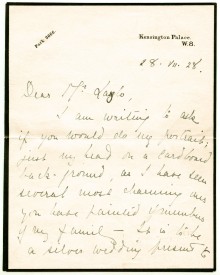 Park 2890.
Kensington Palace,
W.8.
28. IV. 28.
Dear Mr
I am writing to ask
if you would do my portrait,
just my head on a cardboard
back-ground, as I have seen
several most charming ones
you have painted of members
of my family — It is to be
a silver wedding present to